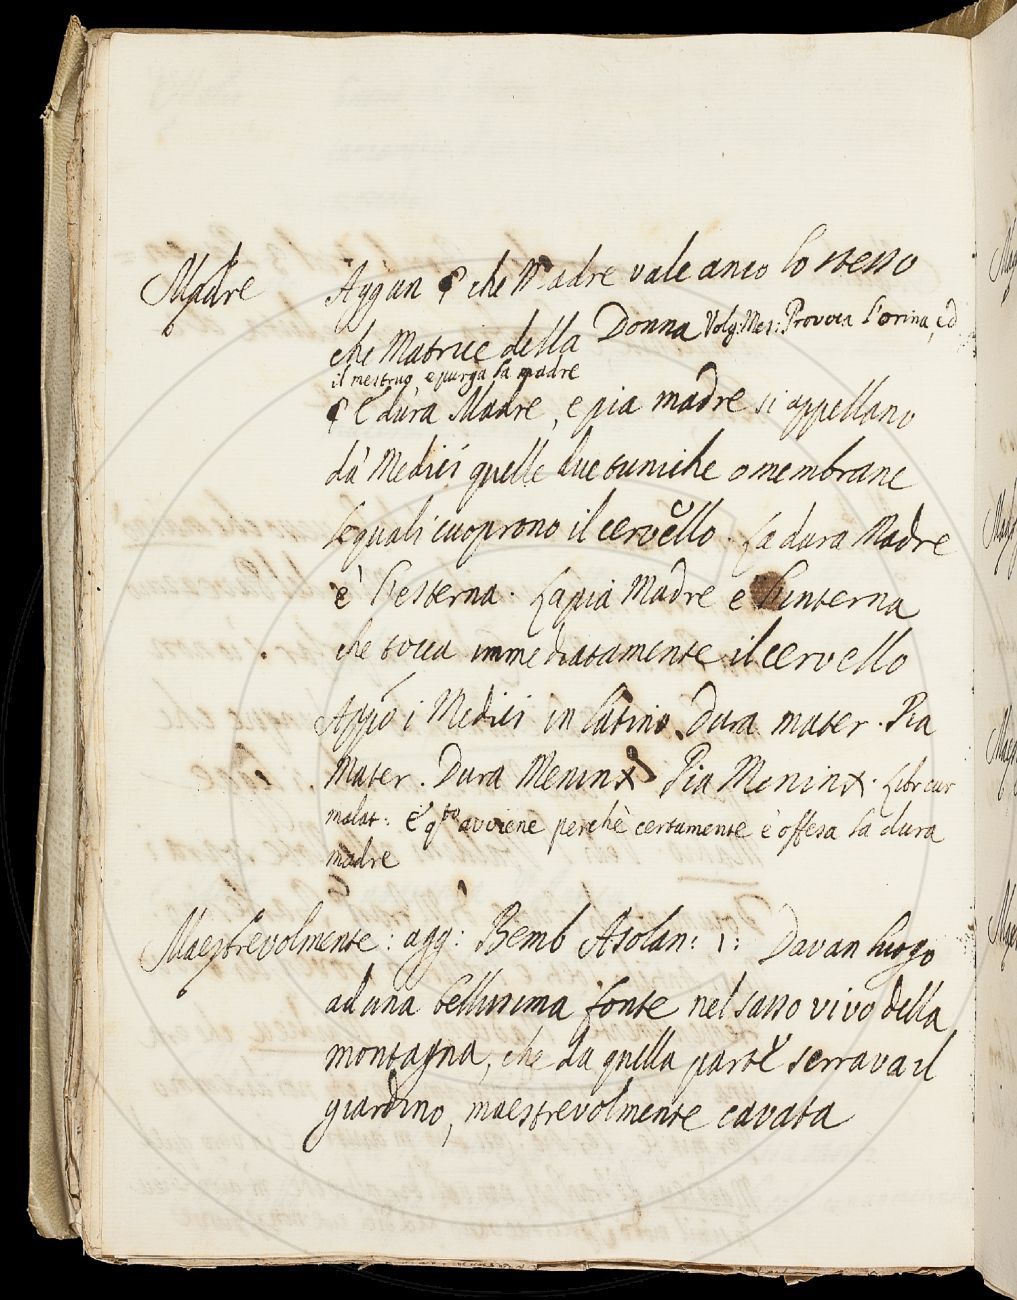 Madre Aggiun § che Madre vale anco lo stesso
che Matrice della Donna Volg: Mes: Provoca l'orina, ed
il mestruo, e purga la madre
§ E dura Madre, e pia madre si appellano
dà Medici quelle due tuniche o membrane
le quali cuoprono il cervello. La dura Madre
è l'esterna. La pia Madre e l'interna
che tocca immediatamente il cervello
Appō i Medici in latino. Dura mater. Pia
Mater. Dura Meninx Pia Meninx. Libr cur
malat: E qto avviene perchè certamente è offesa la dura
madre
Maestrevolmente: agg: Bemb Asolan: 1: Davan luogo
ad una bellissima fonte nel sasso vivo della
montagna, che da quella parte serrava il
giardino, maestrevolmente cavata